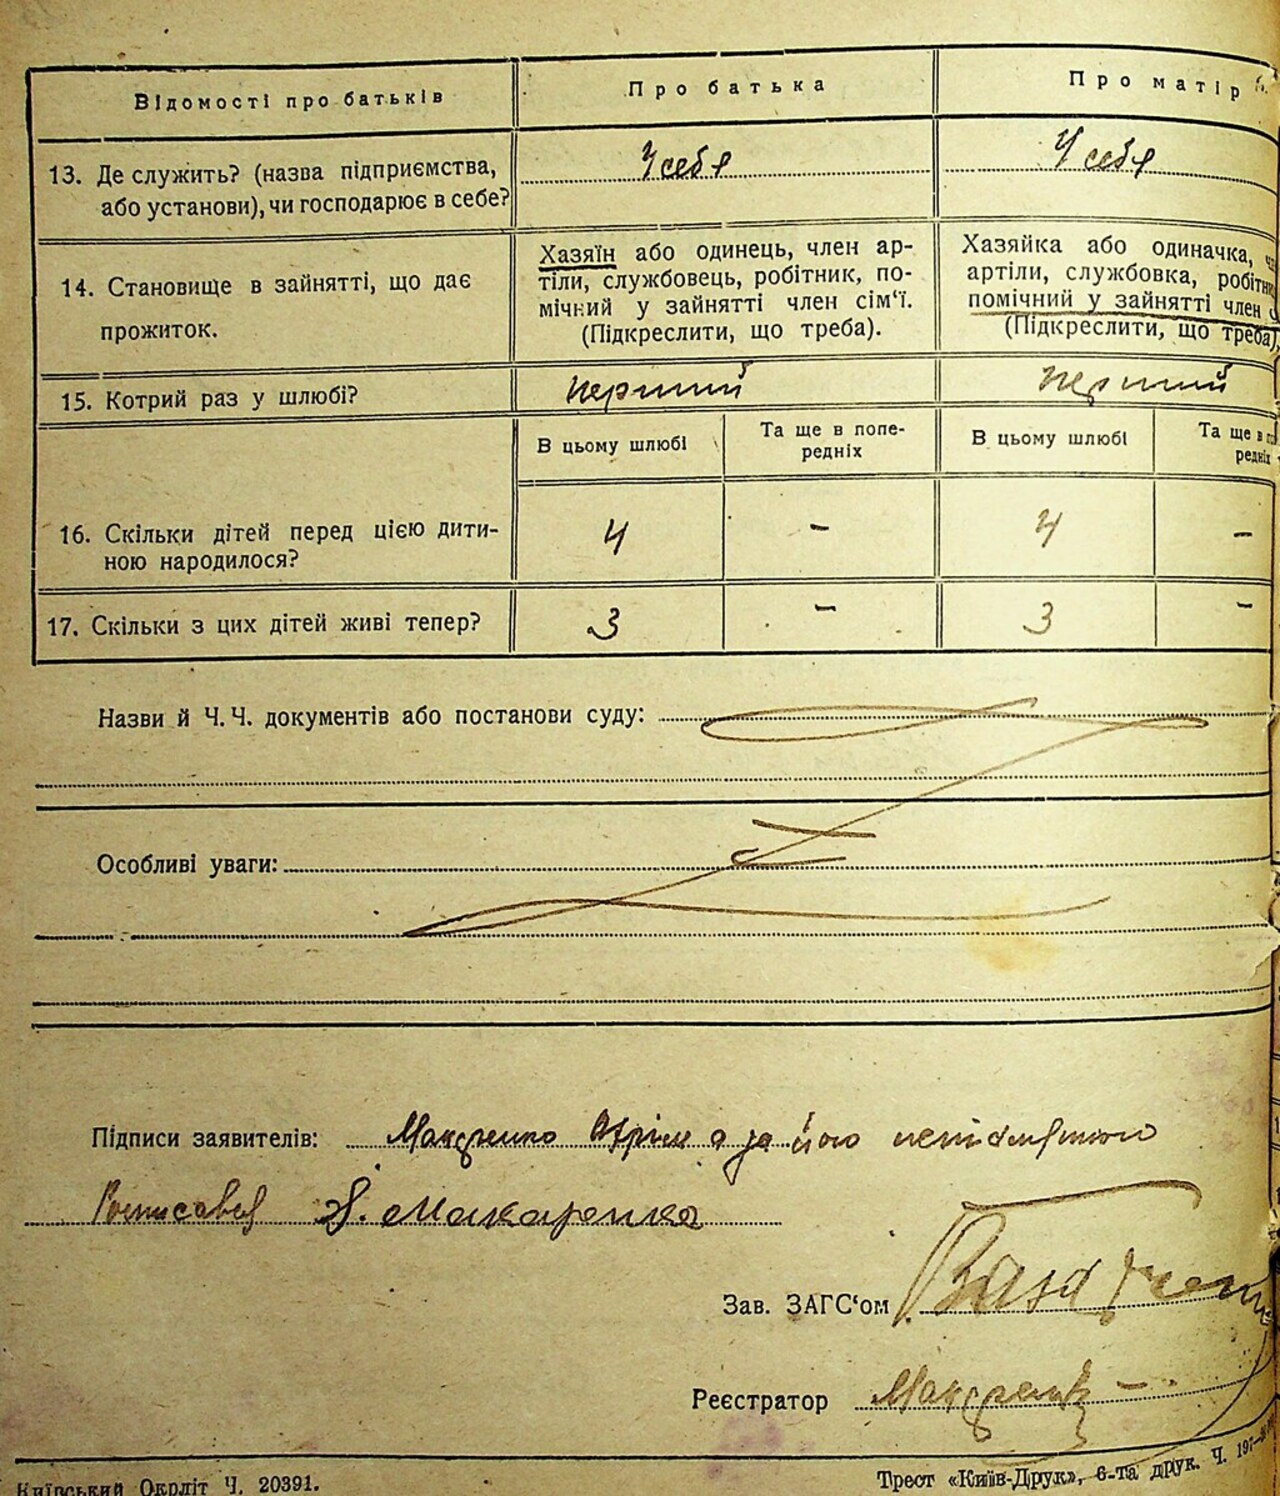 Відомості про батьків
Про батька
Про матір
13. Де служить? (назва підприємства,
або установи), чи господарює в себе?
У себе
У себе
14. Становище в зайнятті, що дає
прожиток.
Хазяїн або одинець, член ар-
тіли, службовець, робітник, по-
мічний у зайнятті член сім‘ї.
(Підкреслити, що треба).
Хазяйка або одиначка,
артіли, службовка,
помічний у зайнятті член
(Підкреслити, що треба)
15. Котрий раз у шлюбі?
перший
перший
В цьому шлюбі
Та ще в попе-
редніх
В цьому шлюбі
Та ще в
редніх
16. Скільки дітей перед цією дити-
ною народилося?
4
-
4
-
17. Скільки з цих дітей живі тепер?
3
-
3
-
Назви й Ч. Ч. документів або постанови суду:
Особливі уваги:
Підписи заявителів: Макаренко а за його неписьменного
Росписавсь Макаренко
Зав. ЗАГС‘ом
Реєстратор Макаренко
Київський Окрліт Ч. 20391.
Трест «Київ-Друк», 6-та друк. Ч.